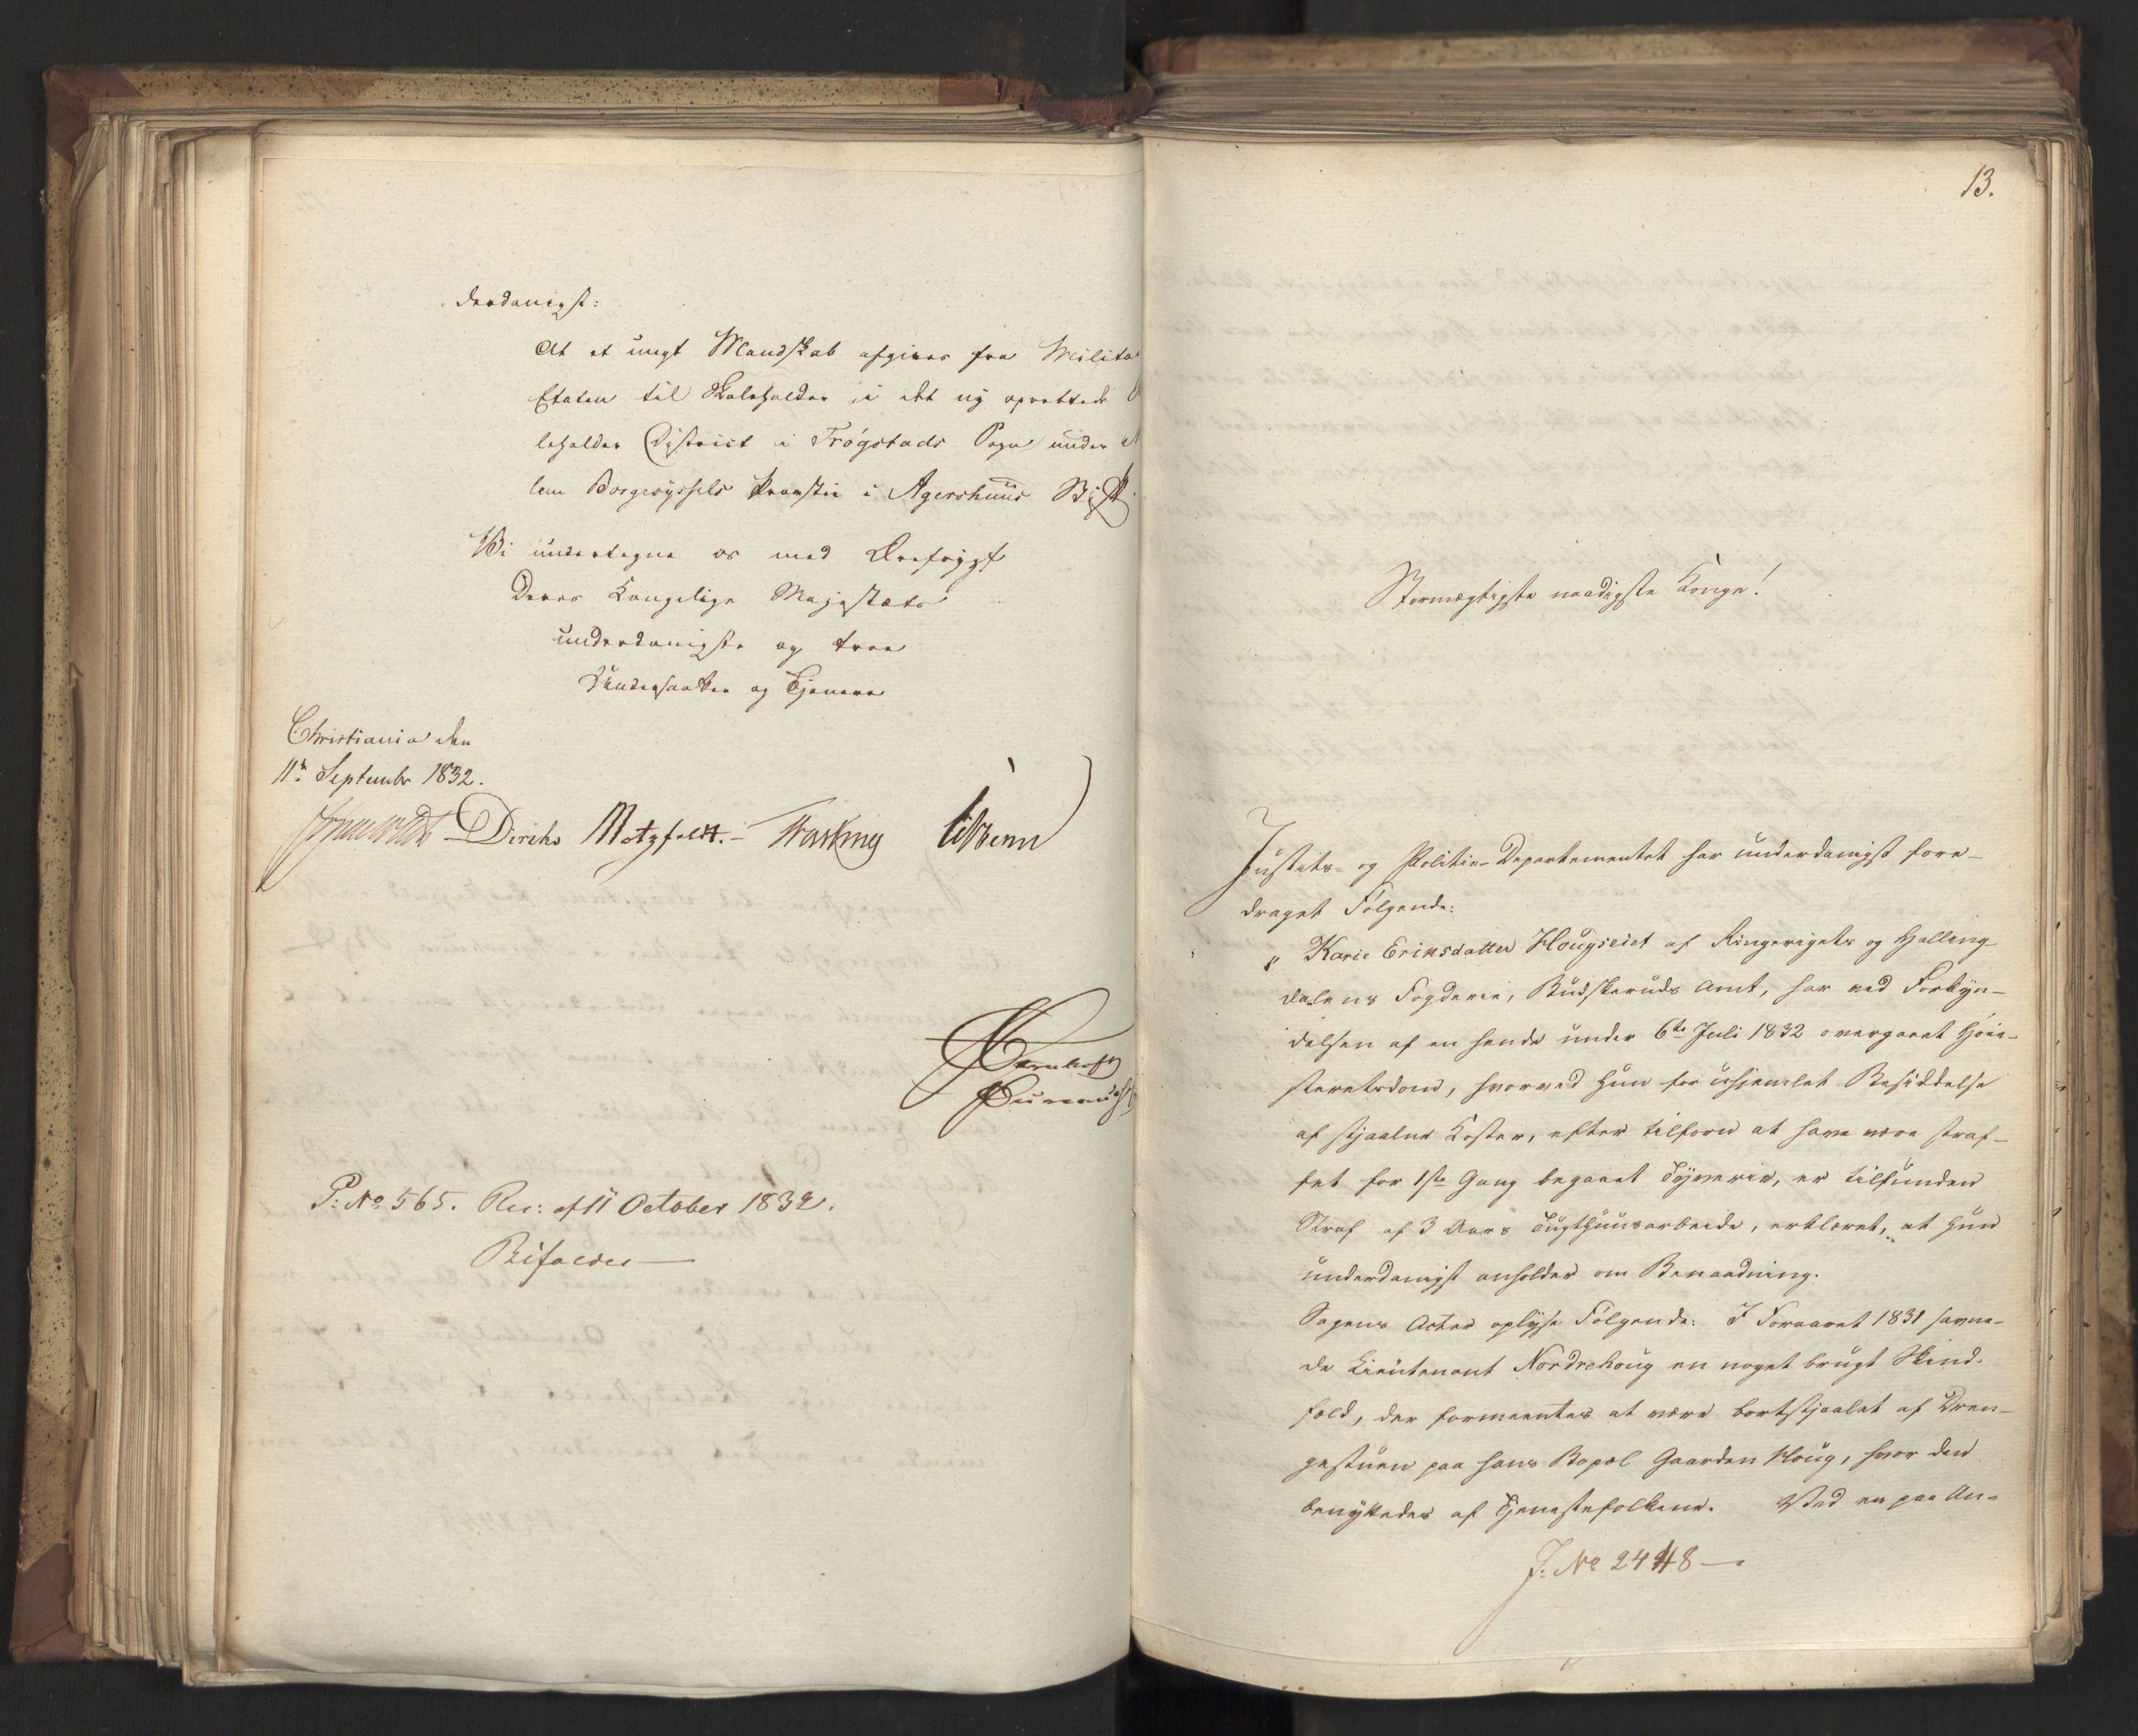 derdanigst:
At et ungt Mandskab afgives fra Milita
Etaten til Skoleholder i det ny oprettede
leholder District i Trøgstads Sogn under
lem Borgesyssels Provstie i Agershuus Stift
Vi undertegne os med Ærefrygt
Deres Kongelige Majestæts
underdanigste og troe
Undersaatter og Tjenere
Christiania den
11te September 1832.
Diriks Motzfeldt.
P: No 565. Res: af 11 October 1832.
Bifaldes
13.
Stormægtigste naadigste Konge!
Justits- og Politie-Departementet har underdanigst fore-
draget Følgende:
„ Karie Eriksdatter Hougseiet af Ringerigets og Halling
dalens Fogderie, Budskeruds Amt, har ved Forkyn-
delsen af en hende under 6te Juli 1832 overgaaet Høie-
steretsdom, hvorved hun for uhjemlet Besiddelse
af stjaalne Koster, efter tilforn at have være straf-
fet for 1ste Gang begaaet Tyverie, er tilfunden
Straf af 3 Aars Tugthuusarbeide, erklæret, at hun
underdanigst anholder om Benaadning.
Sagens Acter oplyse Følgende: I Foraaret 1831 savne-
de Lieutenant Nordrehoug en noget brugt Skind-
fæld, der formeentes at være bortstjaalet af Dren-
gestuen paa hans Bopæl Gaarden Houg, hvor den
benyttedes af Tjenestefolkene. Ved en paa An-
J: No 2448